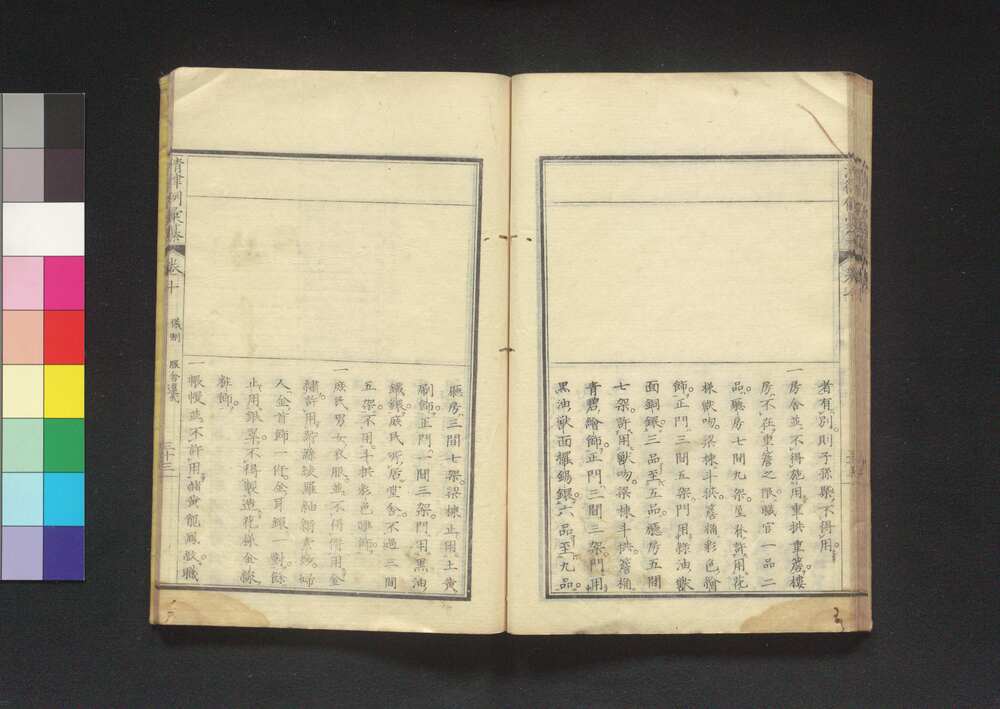 者有別則子孫槩不得用
一房舍並不得施用重拱重簷樓
房不在重簷之限職官一品二
品廳房七間九架屋脊許用花
樣獸吻梁棟斗拱簷桷彩色繪
飾正門三間五架門用綠油獸
面銅鐶三品至五品廳房五間
七架許用獸吻梁棟斗拱簷桷
青碧繪飾正門三間三架門用
黑油獸面擺錫鐶六品至九品
廳房三間七架梁棟止用土黃
刷飾正門一間三架門用黑油
鐵鐶庶民所居堂舍不過三間
五架不用斗拱彩色雕飾
一庶民男女衣服並不得僭用金
繡許用紵絲綾羅紬絹素紗婦
人金首飾一件金耳鐶一對餘
止用銀翠不得製造花樣金線
粧飾
一帳幔並不許用赭黃龍鳳獸職
清律例彙纂
卷十
儀制
服舍違式
三十三